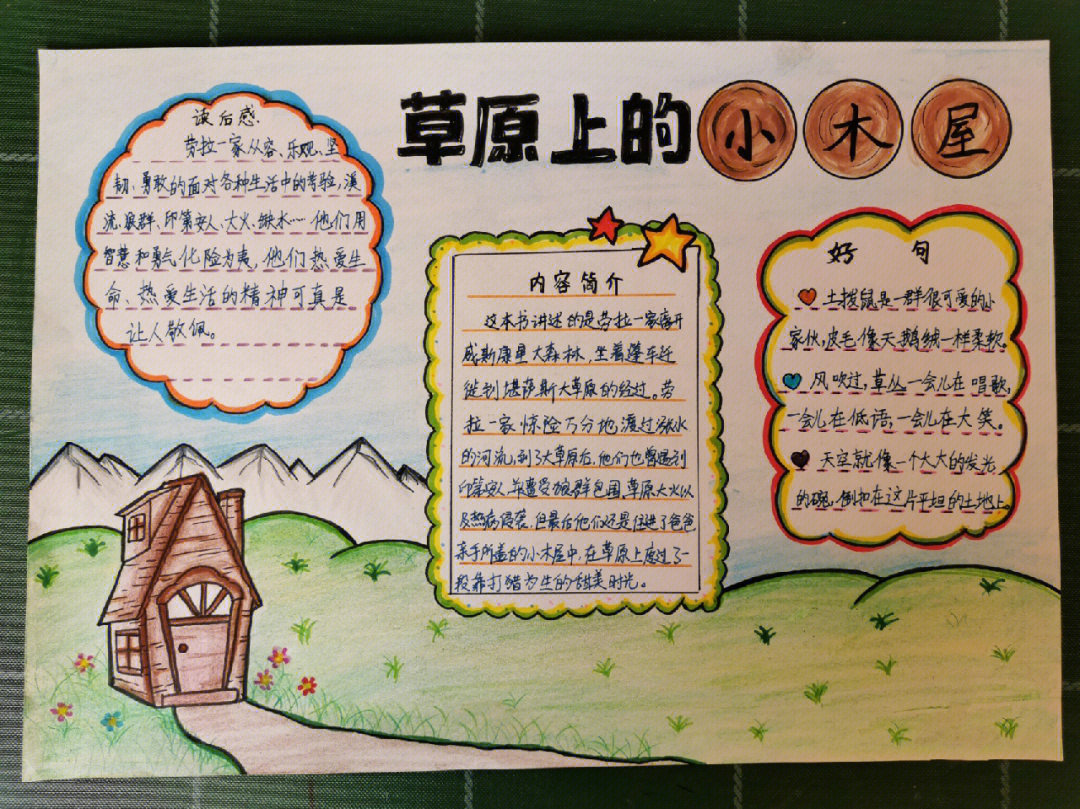 草原上的小木屋
读后感
劳拉一家从容、乐观、坚
韧、勇敢的面对各种生活中的考验,溪
流、狼群、印第安人、大火、缺水……他们用
智慧和勇气化险为夷,他们热爱生
命、热爱生活的精神可真是
让人敬佩。
内容简介
这本书讲述的是劳拉一家离开
威斯康星大森林,坐着篷车迁
徙到堪萨斯大草原的经过。劳
拉一家惊险万分地渡过涨水
的河流,到了大草原后,他们也曾遇到
印第安人,并遭受狼群包围、草原大火以
及热病侵袭,但最后他们还是住进了爸爸
亲手所盖的小木屋中,在草原上度过了一
段靠打猎为生的甜美时光。
好句
土拨鼠是一群很可爱的小
家伙,皮毛像天鹅绒一样柔软。
风吹过,草丛一会儿在唱歌,
一会儿在低语,一会儿在大笑。
天空就像一个大大的发光
的碗,倒扣在这片平坦的土地上。